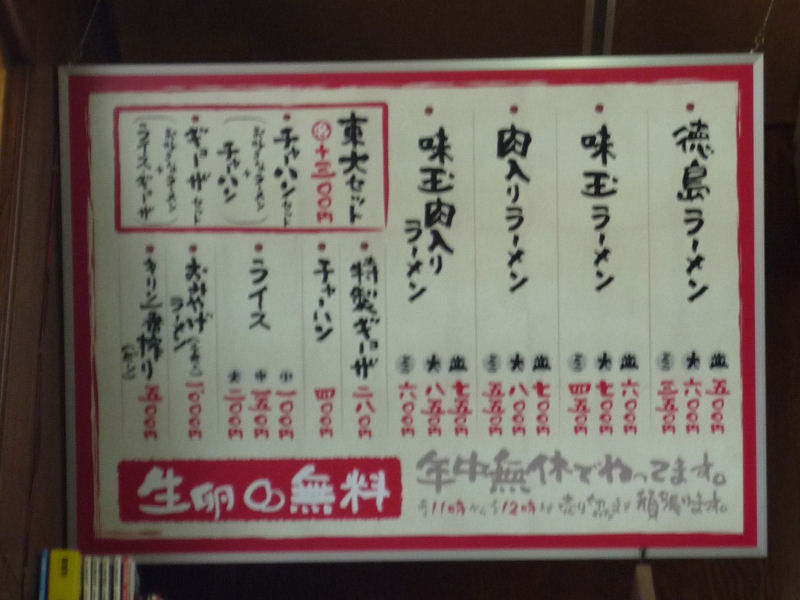 徳島ラーメン
並 五〇〇円
大 六〇〇円
三五〇円
味玉ラーメン
並 六〇〇円
大 七〇〇円
四五〇円
肉入りラーメン
並 七〇〇円
大 八〇〇円
五五〇円
味玉肉入り
ラーメン
並 七五〇円
大 八五〇円
六〇〇円
東大セット
＋三〇〇円
チャーハンセット
チャーハン
ギョーザセット
ライス＋ギョーザ
特製ギョーザ
二八〇円
チャーハン
四〇〇円
ライス
小 一〇〇円
中 一五〇円
大 二〇〇円
おみやげ
ラーメン
一〇〇〇円
キリン一番搾り
五〇〇円
年中無休でやってます。
11時から
12時
頑張ります。
生卵の無料